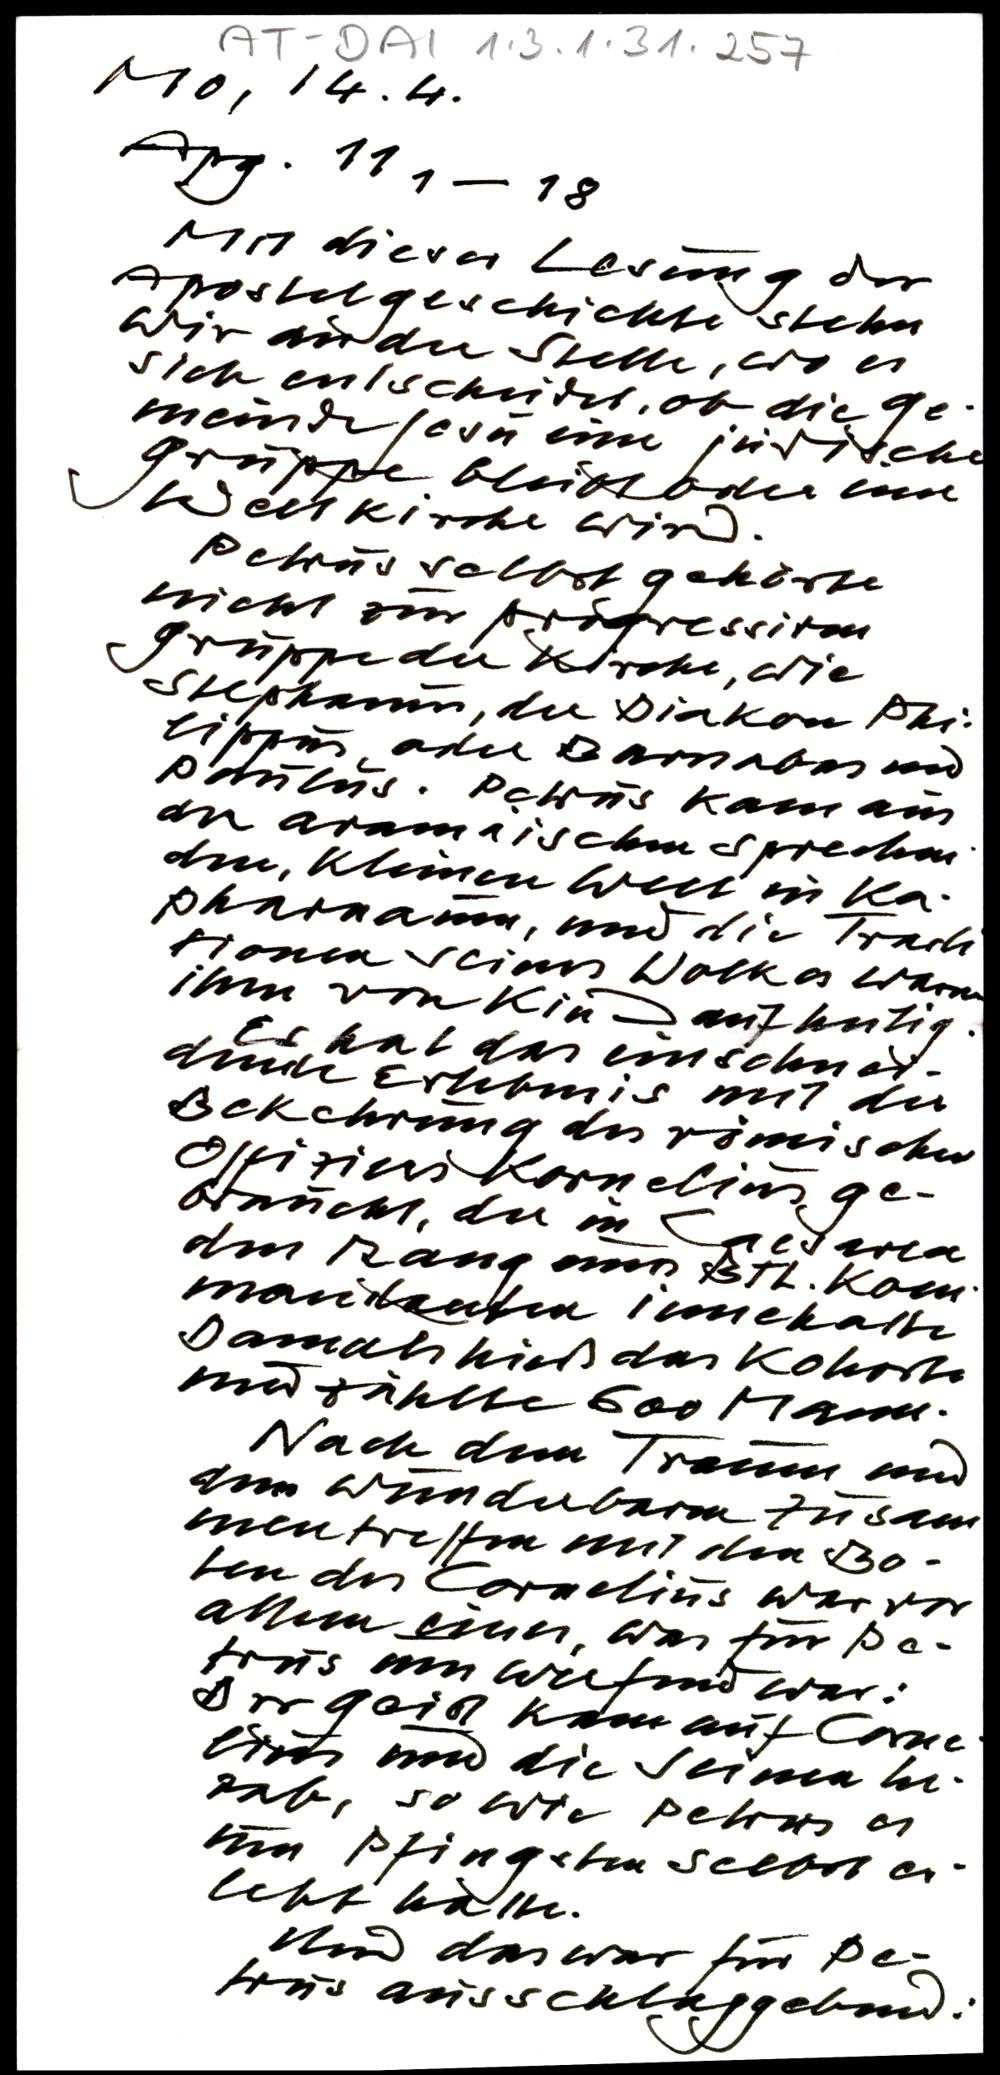 AT-DAI 1.3.1.31.257
Mo, 14.4.
Apg. 11 1 — 18
Mit dieser Lesung der
Apostelgeschichte stehn
wir an der Stelle, wo es
sich entscheidet, ob die Ge-
meinde Jesu eine jüdische
Gruppe bleibt oder eine
Weltkirche wird.
Petrus selbst gehörte
nicht zur progressiven
Gruppe der Kirche, wie
Stephanus, der Diakon Phi-
lippus, oder Barnabas und
Paulus. Petrus kam aus
der aramäischen sprechen-
den, kleinen Welt in Ka-
pharnaum, und die Tradi
tionen seines Volkes waren
ihm von Kind auf heilig.
Es hat das einschnei-
dende Erlebnis mit der
Bekehrung des römischen
Offiziers Kornelius ge-
braucht, der in Caesarea
den Rang eines Btl. Kom-
mandanten innehatte
Damals hieß das Kohorte
und zählte 600 Mann.
Nach dem Traum und
dem wunderbaren Zusam
mentreffen mit den Bo-
ten des Cornelius war vor
allem eines, was für Pe-
trus umwerfend war:
Der Geist kam auf Corne-
lius und die Seinen he-
rab, so wie Petrus es
zu Pfingsten selbst er-
lebt hatte.
Und das war für Pe-
trus ausschlaggebend: